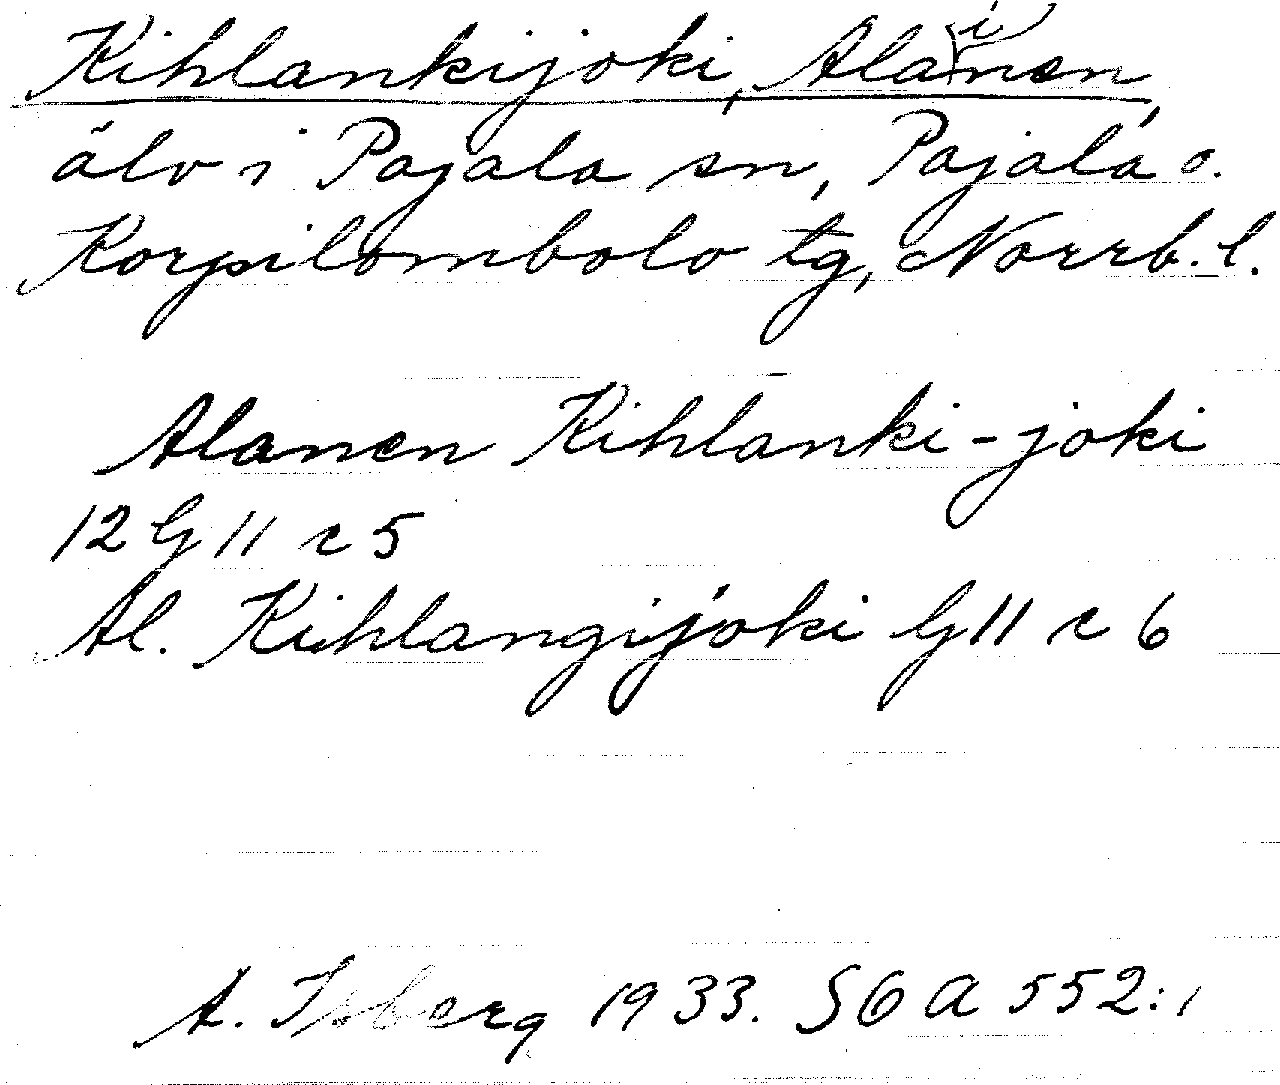 Kihlankijoki, Alainen,
älv i Pajala sn, Pajala o.
Korpilombolo tg, Norrb. l.
Alanen Kihlanki-joki
12 G 11 c 5
Al. Kihlangijoki G 11 c 6
A. Isberg 1933. SOA 552:1